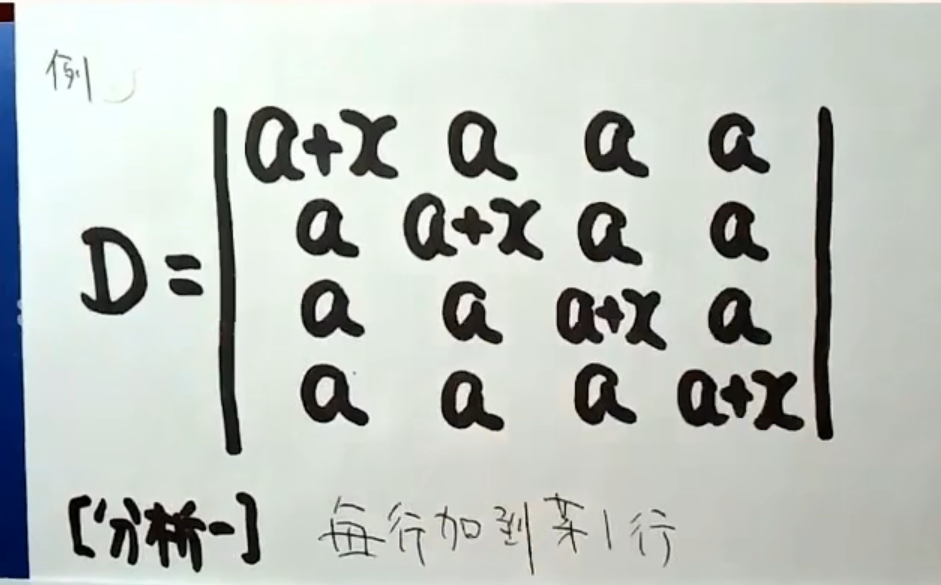 例
D=
a+x a a a
a a+x a a
a a a+x a
a a a a+x
[分析一] 每行加到第1行